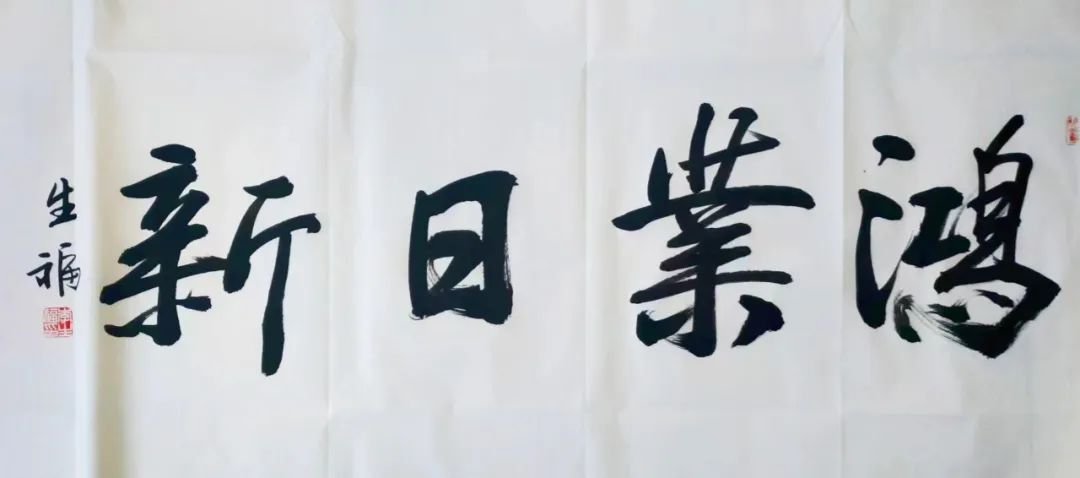 鴻業日新
生福